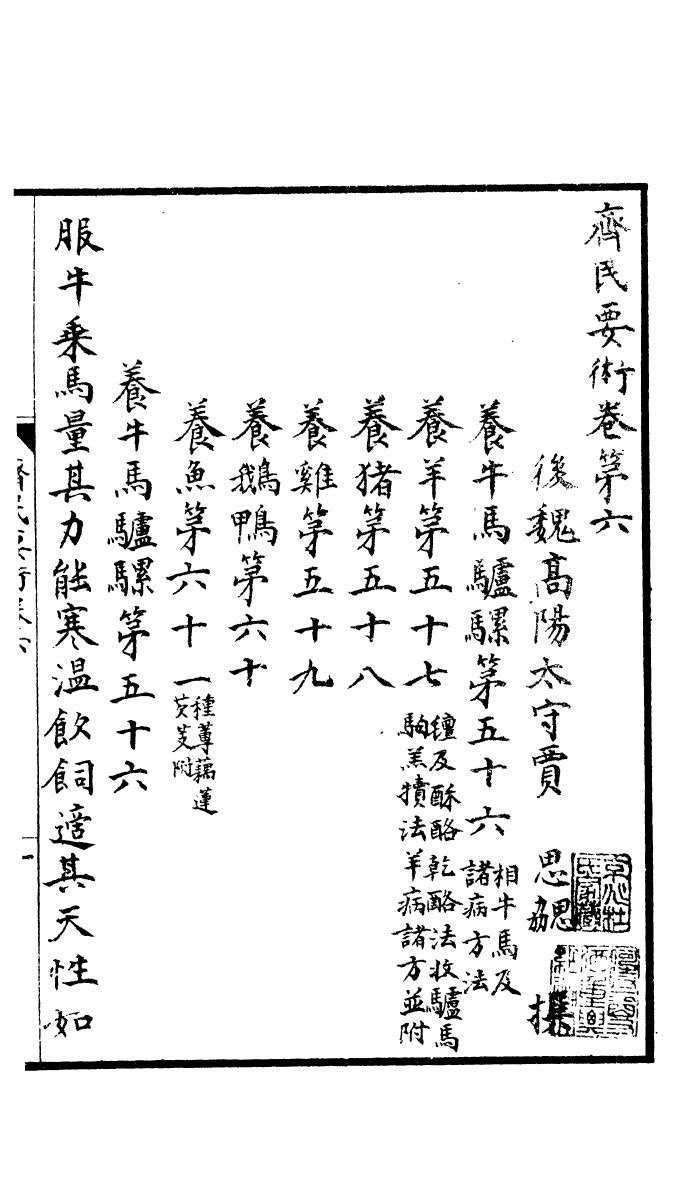 齊民要術卷第六
後魏高陽太守賈思勰撰
養牛馬驢騾第五十六
相牛馬及
諸病方法
養羊第五十七
氊及酥酪乾酪法收驢馬
駒羔犢法羊病諸方並附
養猪第五十八
養雞第五十九
養鵝鴨第六十
養魚第六十一
種蓴藕蓮
芡芰附
養牛馬驢騾第五十六
服牛乗馬量其力能寒温飲飼適其天性如
齊民要術卷六
一